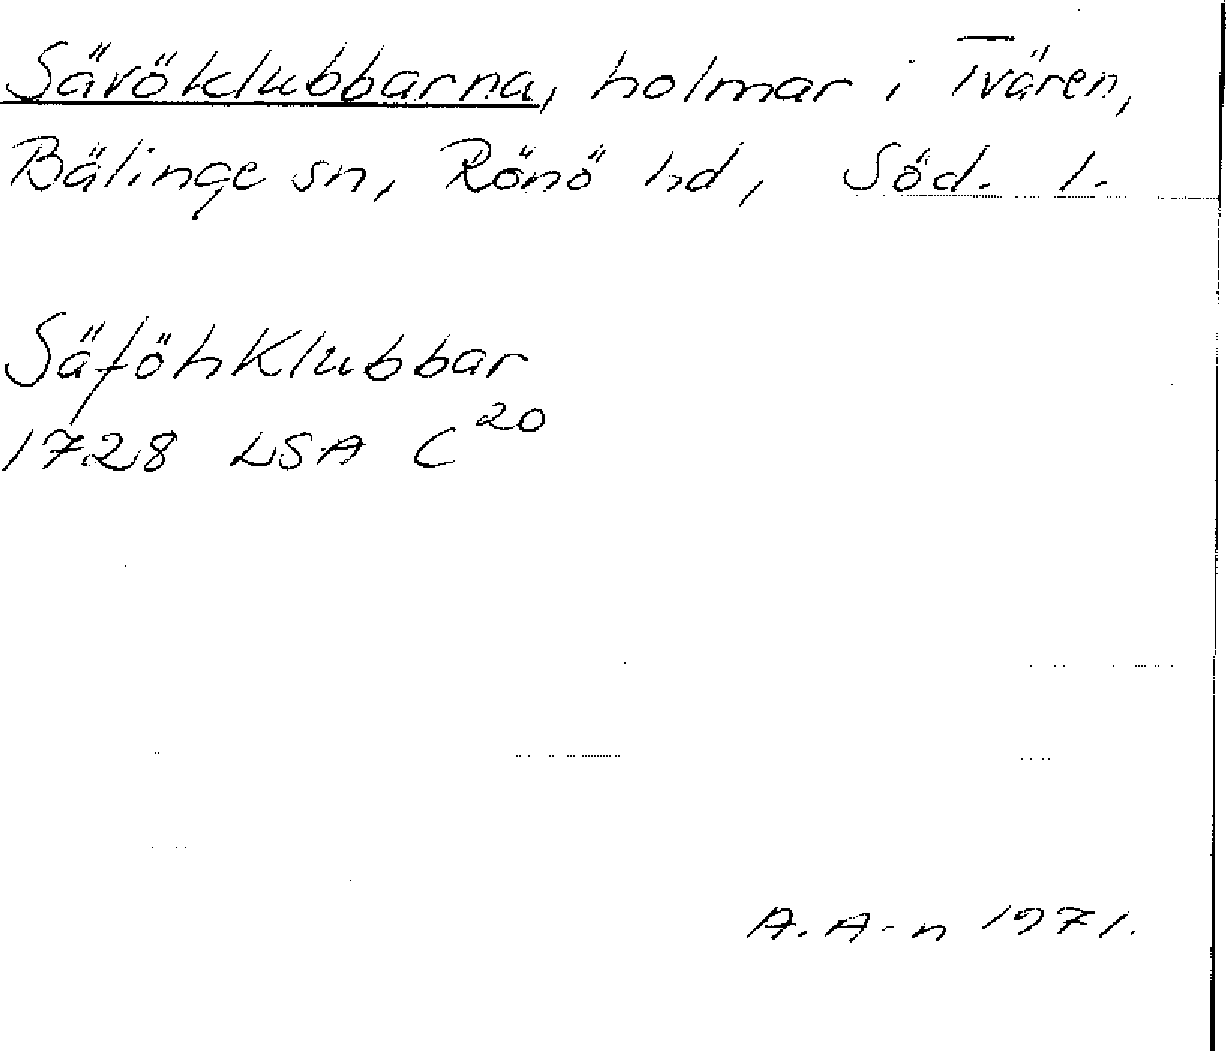 Sävöklubbarna, holmar i Tvären,
Bälinge sn, Rönö hd, Söd. l.
Säföh Klubbar
1728 LSA C 20
A. A-n 1971.